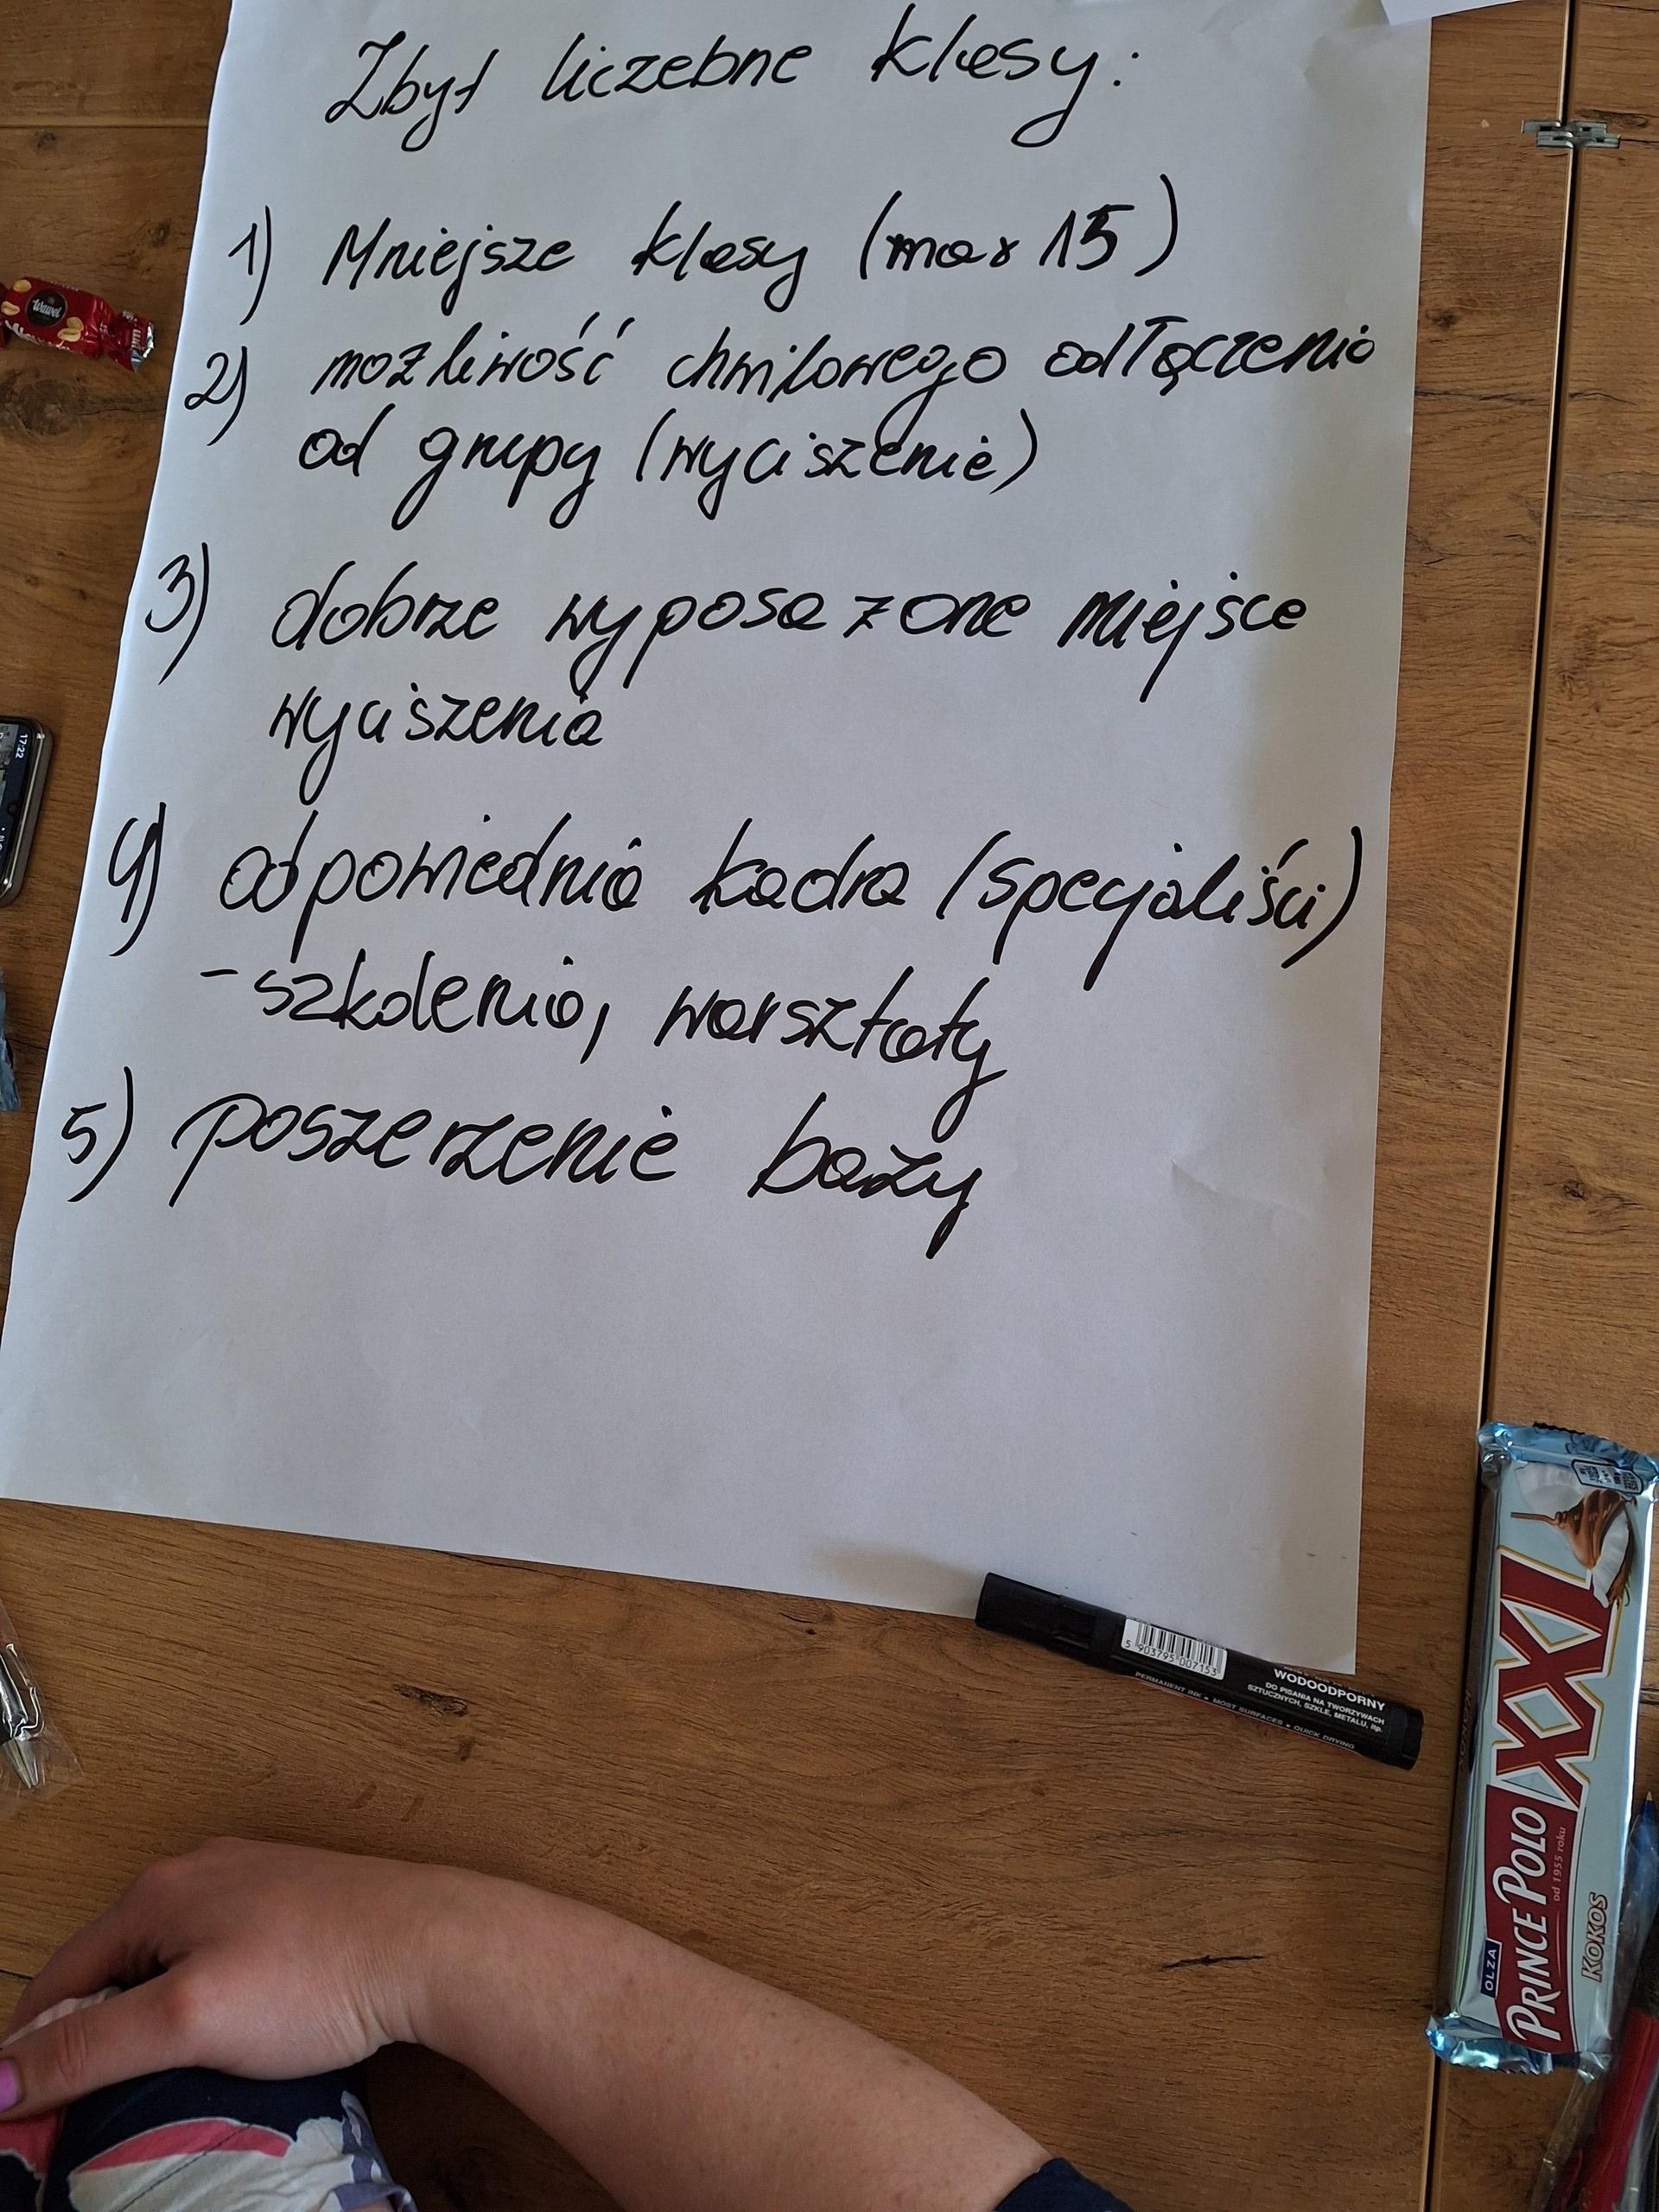 Zbyt liczebne klasy:
1) Mniejsze klasy (max 15)
2) możliwość chwilowego odłączenia
od grupy (wyciszenie)
3) dobrze wyposażone miejsce
wyciszenia
4) odpowiednia kadra (specjaliści)
- szkolenia, warsztaty
5) poszerzenie bazy
Wawel
17:22
5 903795 007153
WODOODPORNY
DO PISANIA NA TWORZYWACH
SZTUCZNYCH, SZKLE, METALU, itp.
PERMANENT INK • MOST SURFACES • QUICK DRYING
OLZA
PRINCE POLO XXL
od 1955 roku
KOKOS